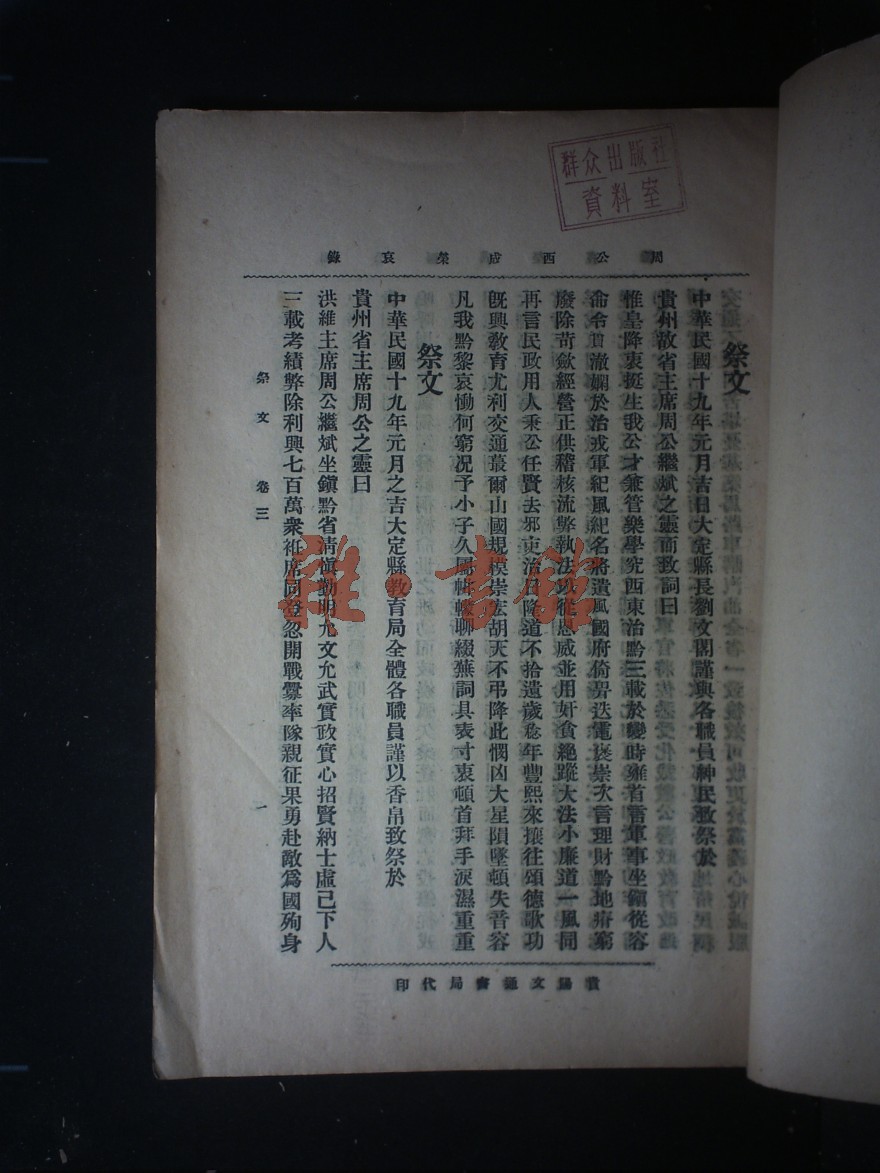 群众出版社
資料室
周公西成榮哀錄
祭文
中華民國十九年元月吉日大定縣長劉文閣謹與各職員紳民致祭於
貴州故省主席周公繼斌之靈而致詞曰
惟皇降衷挺生我公才兼管樂學究西東治黔三載於變時雍首言軍事坐鎭從容
命令首澈嫻於治戎軍紀風紀名將遺風國府倚畀迭電褒崇次言理財黔地瘠窮
廢除苛歛經營正供稽核流弊執法以從恩威並用奸貪絕蹤大法小廉道一風同
再言民政用人秉公任賢去邪吏治日隆道不拾遺歲稔年豐熙來攘往頌德歌功
旣興敎育尤利交通蕞爾山國規模崇宏胡天不弔降此憫凶大星隕墜頓失音容
凡我黔黎哀慟何窮况予小子久圖帡幪聊綴蕪詞具表寸衷頓首拜手淚濕重重
祭文
中華民國十九年元月之吉大定縣敎育局全體各職員謹以香帛致祭於
貴州省主席周公之靈曰
洪維主席周公繼斌坐鎭黔省淸愼勤明允文允武實政實心招賢納士虛己下人
三載考績弊除利興七百萬衆袵席同登忽開戰釁率隊親征果勇赴敵爲國殉身
祭文 卷三 一
貴陽文通書局代印
雜·書館